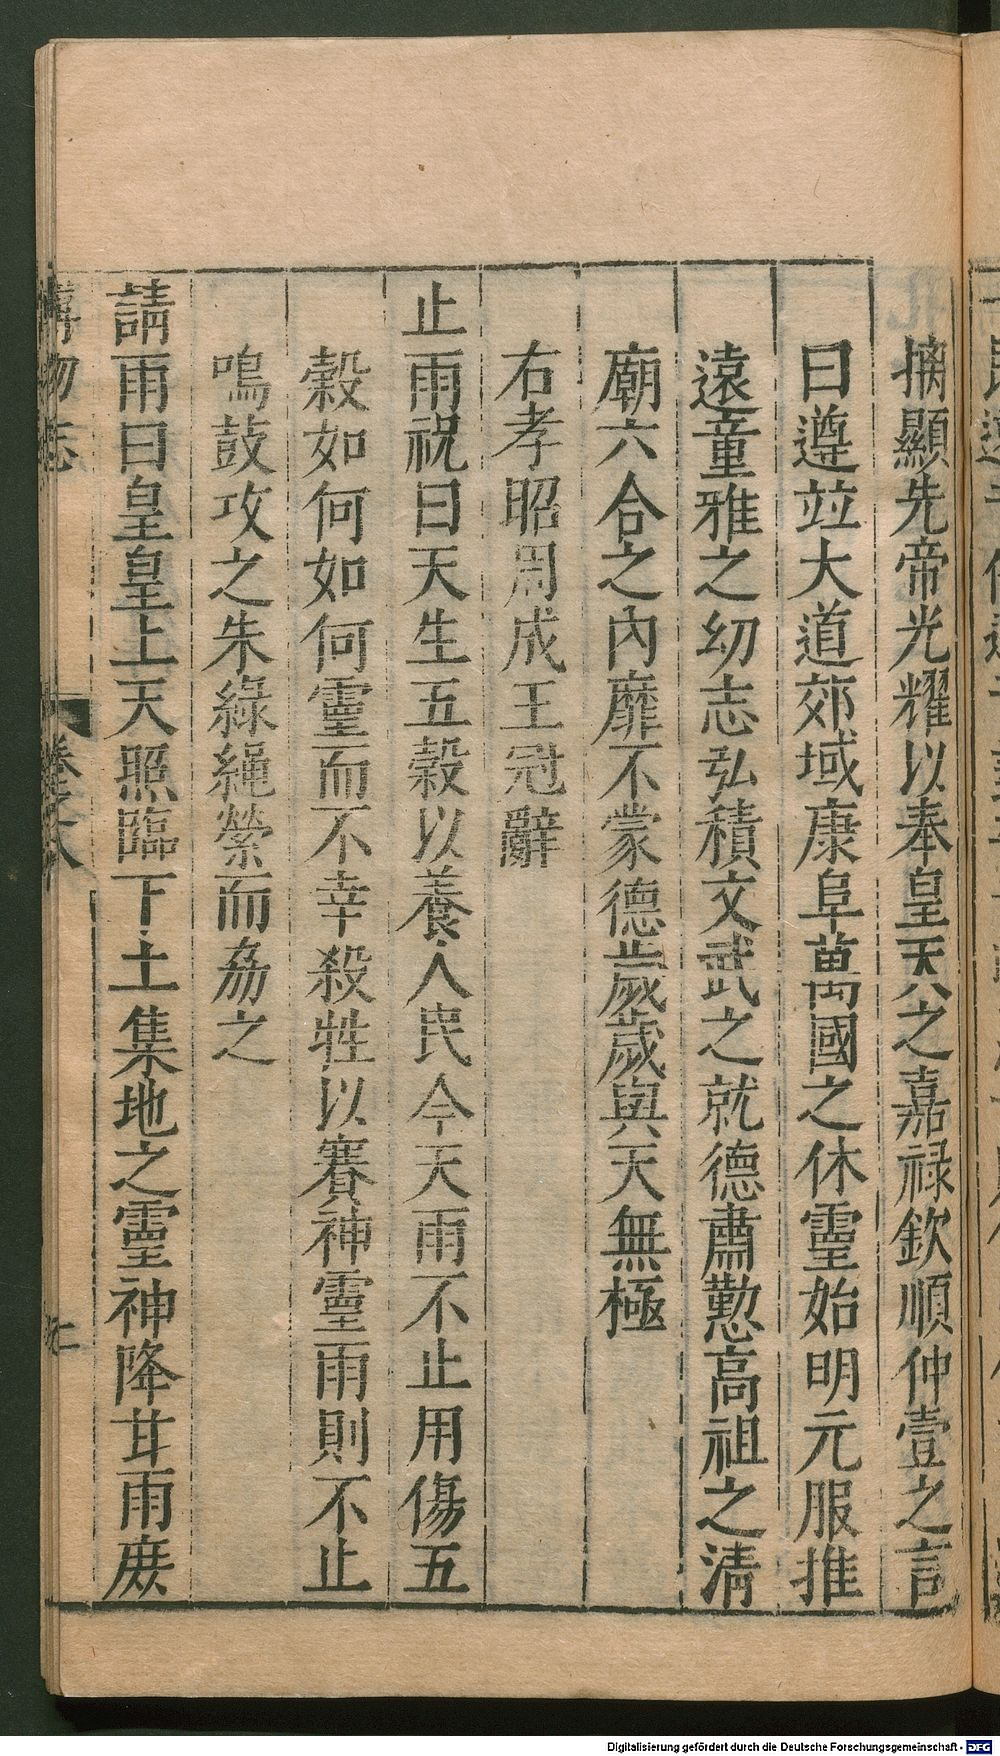 摛顯先帝光耀以奉皇天之嘉祿欽順仲壹之言
曰遵並大道郊域康阜萬國之休靈始明元服推
遠童雅之幼志弘積文武之就德肅懃高祖之清
廟六合之內靡不蒙德歲歲與天無極
右孝昭周成王冠辭
止雨祝曰天生五穀以養人民今天雨不止用傷五
穀如何如何靈而不幸殺牲以賽神靈雨則不止
鳴鼓攻之朱綠繩縈而劦之
請雨曰皇皇上天照臨下土集地之靈神降甘雨庶
博物志 卷之八 二
Digitalisierung gefördert durch die Deutsche Forschungsgemeinschaft - DFG